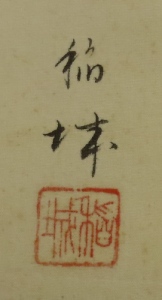 稲
城
稲城